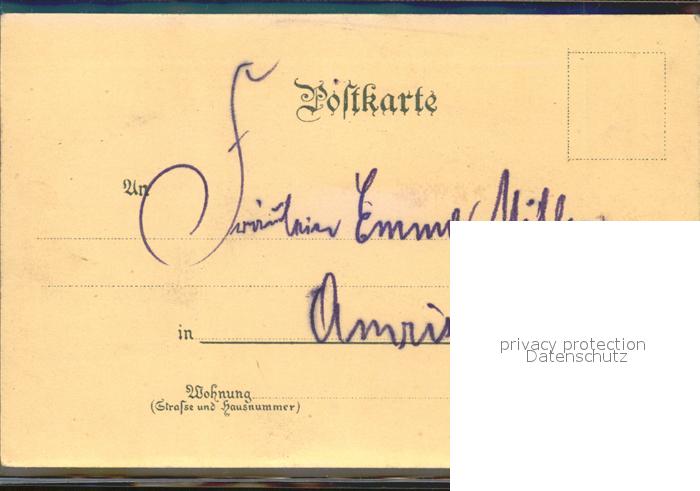 Postkarte
An
Fräulein Emma
in
Wohnung
(Strasse und Hausnummer)
privacy protection
Datenschutz